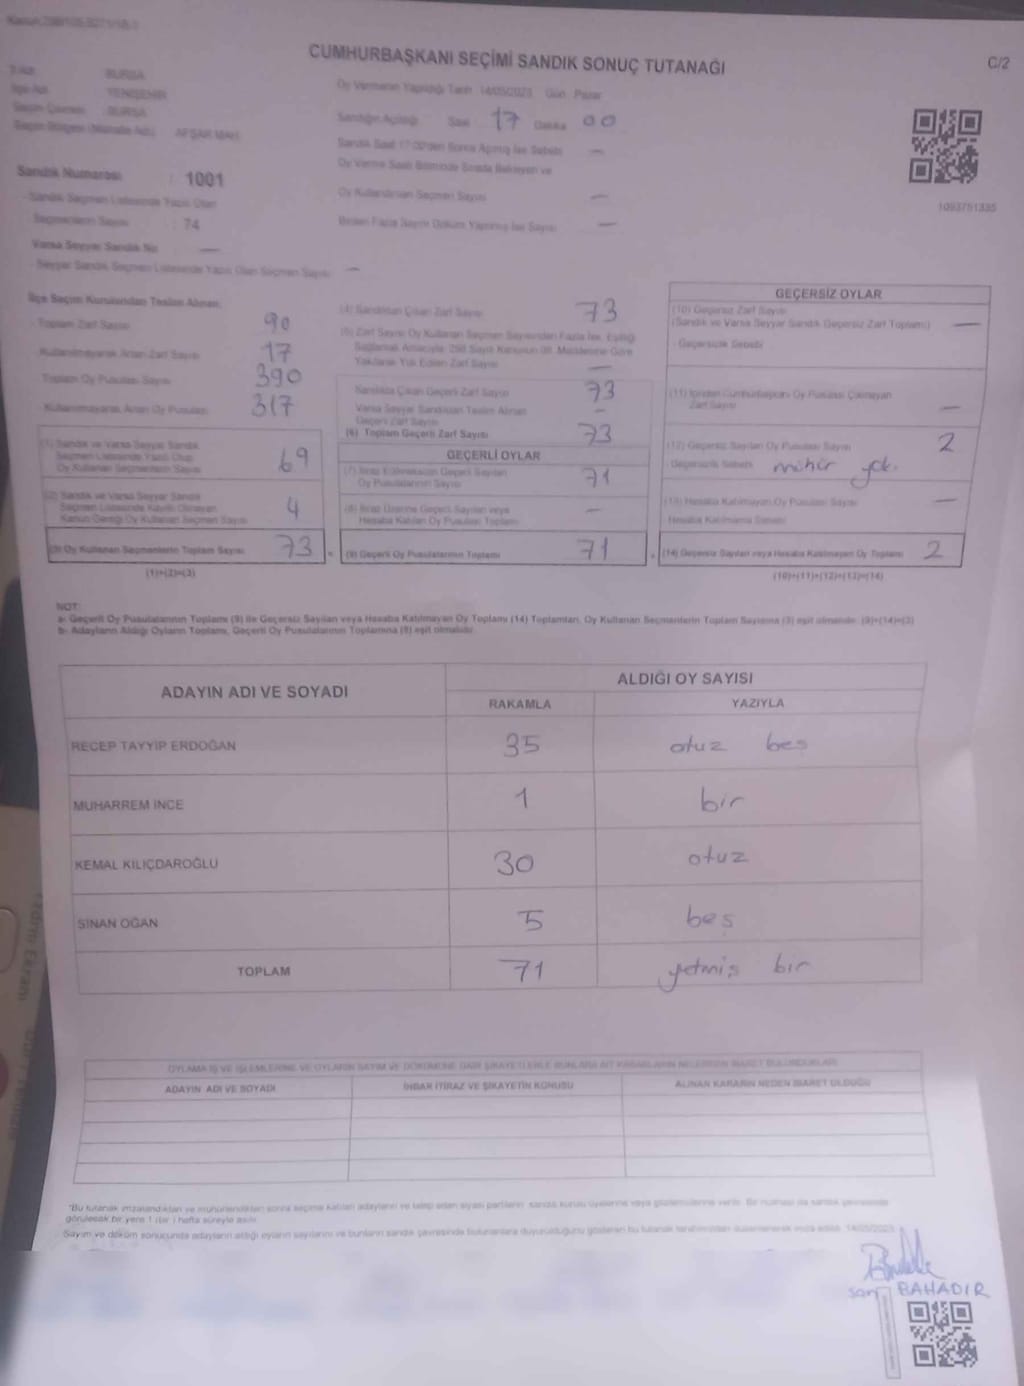 CUMHURBAŞKANI SEÇİMİ SANDIK SONUÇ TUTANAĞI
C/2
İli Adı BURSA
İlçe Adı YENİŞEHİR
Seçim Çevresi BURSA
Seçim Bölgesi (Mahalle Adı) AFŞAR MAH.
Oy Vermenin Yapıldığı Tarih 14/05/2023 Gün Pazar
Sandığın Açıldığı Saat 17 Dakika 00
Sandık Saat 17:00'den Sonra Açılmış İse Sebebi —
Oy Verme Saati Bitiminde Sırada Bekleyen ve
Oy Kullandırılan Seçmen Sayısı —
Birden Fazla Sayım Döküm Yapılmış İse Sayısı —
1093751335
Sandık Numarası : 1001
Sandık Seçmen Listesinde Yazılı Olan
Seçmenlerin Sayısı : 74
Varsa Seyyar Sandık No —
Seyyar Sandık Seçmen Listesinde Yazılı Olan Seçmen Sayısı —
İlçe Seçim Kurulundan Teslim Alınan:
Toplam Zarf Sayısı 90
Kullanılmayarak Artan Zarf Sayısı 17
Toplam Oy Pusulası Sayısı 390
Kullanılmayarak Artan Oy Pusulası 317
(1) Sandık ve Varsa Seyyar Sandık
Seçmen Listesinde Yazılı Olup
Oy Kullanan Seçmenlerin Sayısı 69
(2) Sandık ve Varsa Seyyar Sandık
Seçmen Listesinde Kayıtlı Olmayan
Kanun Gereği Oy Kullanan Seçmen Sayısı 4
(3) Oy Kullanan Seçmenlerin Toplam Sayısı 73
(1)+(2)=(3)
(4) Sandıktan Çıkan Zarf Sayısı 73
(5) Zarf Sayısı Oy Kullanan Seçmen Sayısından Fazla İse, Eşitliği
Sağlamak Amacıyla, 298 Sayılı Kanunun 98. Maddesine Göre
Yakılarak Yok Edilen Zarf Sayısı —
Sandıkta Çıkan Geçerli Zarf Sayısı 73
Varsa Seyyar Sandıktan Teslim Alınan
Geçerli Zarf Sayısı -
(6) Toplam Geçerli Zarf Sayısı 73
GEÇERLİ OYLAR
(7) İtiraz Edilmeksizin Geçerli Sayılan
Oy Pusulalarının Sayısı 71
(8) İtiraz Üzerine Geçerli Sayılan veya
Hesaba Katılan Oy Pusulası Toplamı —
(9) Geçerli Oy Pusulalarının Toplamı 71
GEÇERSİZ OYLAR
(10) Geçersiz Zarf Sayısı
(Sandık ve Varsa Seyyar Sandık Geçersiz Zarf Toplamı) —
- Geçersizlik Sebebi
(11) İçinden Cumhurbaşkanı Oy Pusulası Çıkmayan
Zarf Sayısı —
(12) Geçersiz Sayılan Oy Pusulası Sayısı 2
- Geçersizlik Sebebi mühür yok.
(13) Hesaba Katılmayan Oy Pusulası Sayısı —
Hesaba Katılmama Sebebi
(14) Geçersiz Sayılan veya Hesaba Katılmayan Oy Toplamı 2
(10)+(11)+(12)+(13)=(14)
NOT:
a- Geçerli Oy Pusulalarının Toplamı (9) ile Geçersiz Sayılan veya Hesaba Katılmayan Oy Toplamı (14) Toplamları, Oy Kullanan Seçmenlerin Toplam Sayısına (3) eşit olmalıdır. (9)+(14)=(3)
b- Adayların Aldığı Oyların Toplamı, Geçerli Oy Pusulalarının Toplamına (9) eşit olmalıdır.
ADAYIN ADI VE SOYADI ALDIĞI OY SAYISI
RAKAMLA YAZIYLA
RECEP TAYYİP ERDOĞAN 35 otuz beş
MUHARREM İNCE 1 bir
KEMAL KILIÇDAROĞLU 30 otuz
SİNAN OĞAN 5 beş
TOPLAM 71 yetmiş bir
OYLAMA İŞ VE İŞLEMLERİNE VE OYLARIN SAYIM VE DÖKÜMÜNE DAİR ŞİKAYETLERLE BUNLARA AİT KARARLARIN NELERDEN İBARET BULUNDUKLARI
ADAYIN ADI VE SOYADI İHBAR İTİRAZ VE ŞİKAYETİN KONUSU ALINAN KARARIN NEDEN İBARET OLDUĞU
BAHADIR